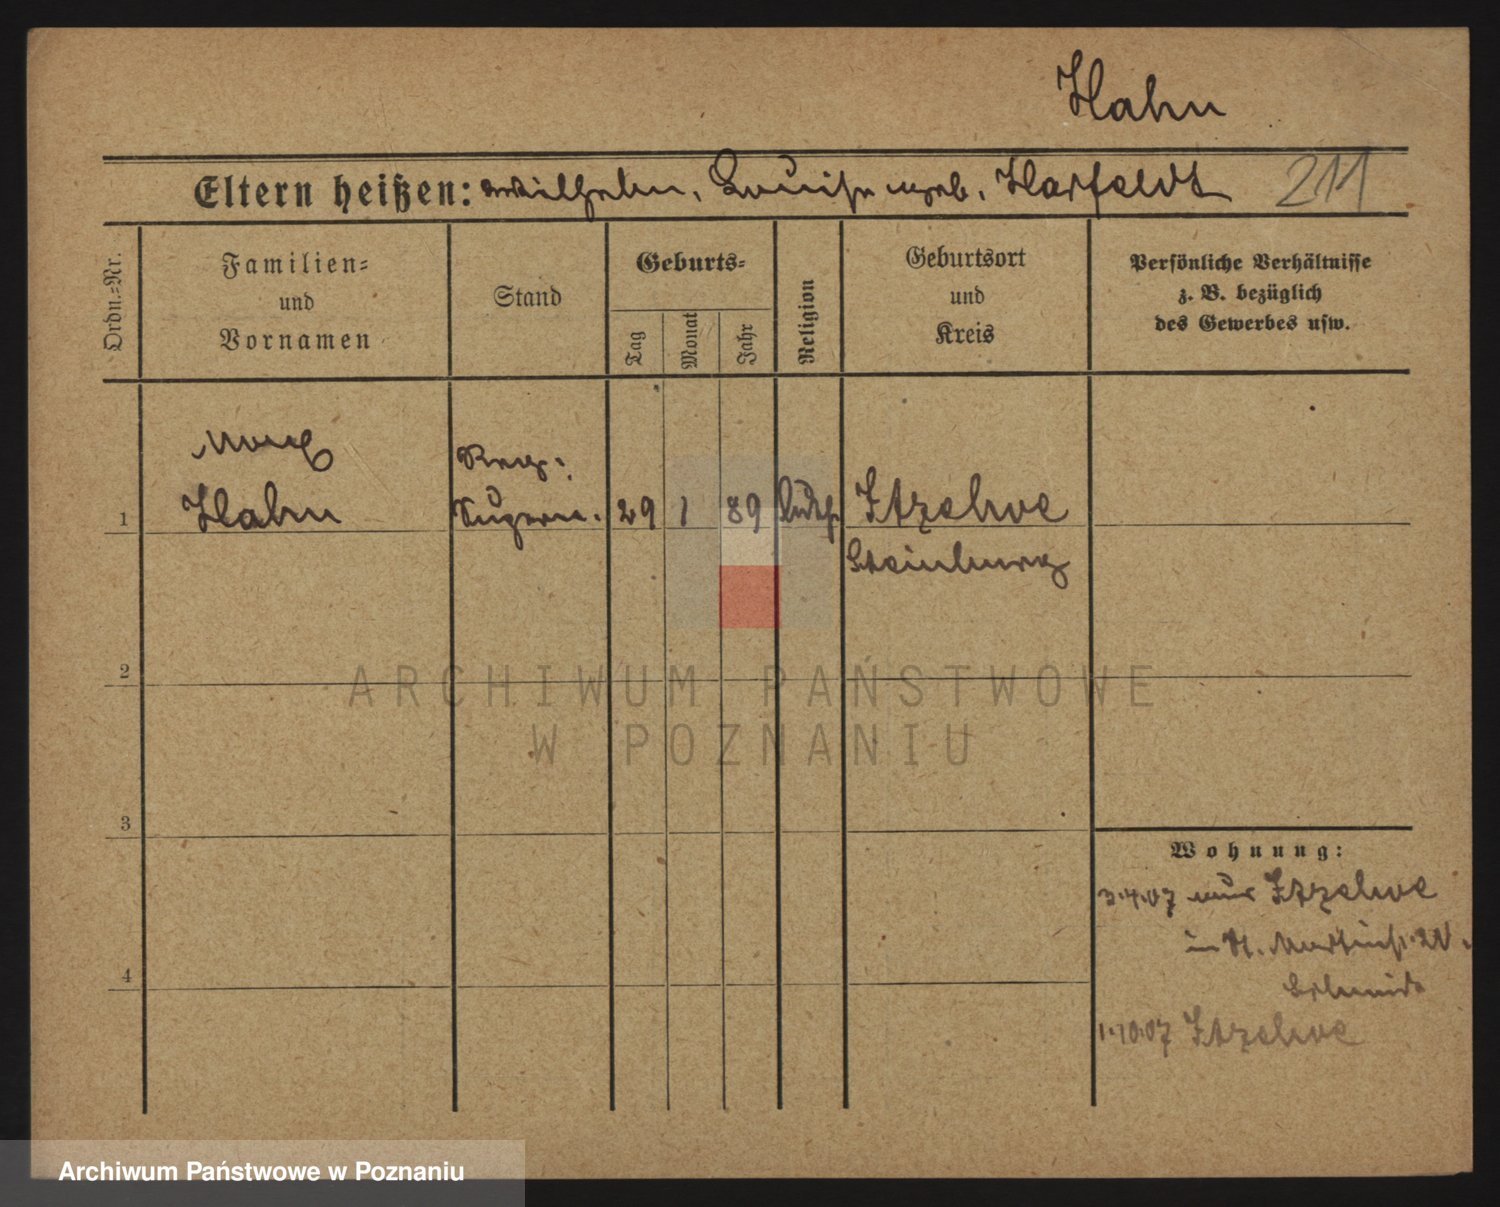 Hahn
Eltern heißen: Wilhelm, Louise geb. Harfeldt 211
Ordn.-Nr.
Familien-
und
Vornamen
Stand
Geburts-
Tag
Monat
Jahr
Religion
Geburtsort
und
Kreis
Persönliche Verhältnisse
z. B. bezüglich
des Gewerbes usw.
Reg:
1 Hahn 29 1 89 Luth. Itzehoe
Steinburg
2
ARCHIWUM PAŃSTWOWE
W POZNANIU
3
Wohnung:
3.4.07 aus Itzehoe
in St. Martinstr.
4
1.10.07 Itzehoe
Archiwum Państwowe w Poznaniu